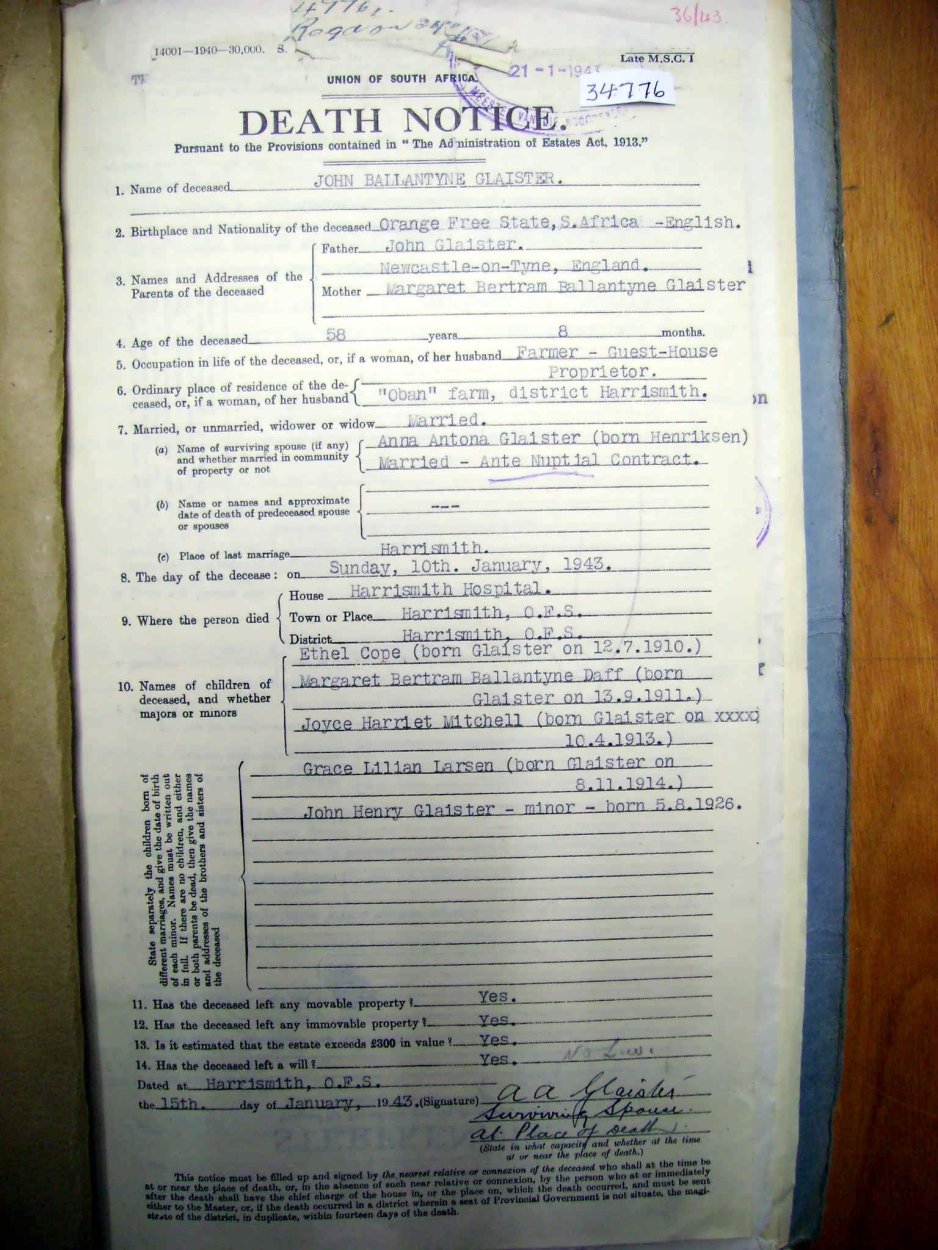 36/43.
14001—1940—30,000. S.
Late M.S.C. 1
UNION OF SOUTH AFRICA.
21-1-194
34776
DEATH NOTICE.
Pursuant to the Provisions contained in "The Administration of Estates Act, 1913."
1. Name of deceased JOHN BALLANTYNE GLAISTER.
2. Birthplace and Nationality of the deceased Orange Free State, S.Africa -English.
3. Names and Addresses of the Parents of the deceased
Father John Glaister.
Newcastle-on-Tyne, England.
Mother Margaret Bertram Ballantyne Glaister
4. Age of the deceased 58 years 8 months.
5. Occupation in life of the deceased, or, if a woman, of her husband Farmer - Guest-House
Proprietor.
6. Ordinary place of residence of the de-
ceased, or, if a woman, of her husband "Oban" farm, district Harrismith.
7. Married, or unmarried, widower or widow Married.
(a) Name of surviving spouse (if any) Anna Antona Glaister (born Henriksen)
and whether married in community
of property or not Married - Ante Nuptial Contract.
(b) Name or names and approximate
date of death of predeceased spouse ---
or spouses
(c) Place of last marriage Harrismith.
8. The day of the decease: on Sunday, 10th. January, 1943.
9. Where the person died
House Harrismith Hospital.
Town or Place Harrismith, O.F.S.
District Harrismith, O.F.S.
10. Names of children of
deceased, and whether
majors or minors
Ethel Cope (born Glaister on 12.7.1910.)
Margaret Bertram Ballantyne Daff (born
Glaister on 13.9.1911.)
Joyce Harriet Mitchell (born Glaister on xxxx
10.4.1913.)
State separately the children born of
different marriages, and give the date of birth
of each minor. Names must be written out
in full. If there are no children, and either
or both parents be dead, then give the names
and addresses of the brothers and sisters of
the deceased
Grace Lilian Larsen (born Glaister on
8.11.1914.)
John Henry Glaister - minor - born 5.8.1926.
11. Has the deceased left any movable property? Yes.
12. Has the deceased left any immovable property? Yes.
13. Is it estimated that the estate exceeds £300 in value? Yes.
14. Has the deceased left a will? Yes.
Dated at Harrismith, O.F.S.
the 15th. day of January, 1943. (Signature) A A Glaister
Surviving Spouse.
at Place of Death.
(State in what capacity and whether at the time
at or near the place of death.)
This notice must be filled up and signed by the nearest relative or connexion of the deceased who shall at the time be
at or near the place of death, or, in the absence of such near relative or connexion, by the person who at or immediately
after the death shall have the chief charge of the house in, or the place on, which the death occurred, and must be sent
either to the Master, or, if the death occurred in a district wherein a seat of Provincial Government is not situate, the magi-
strate of the district, in duplicate, within fourteen days of the death.